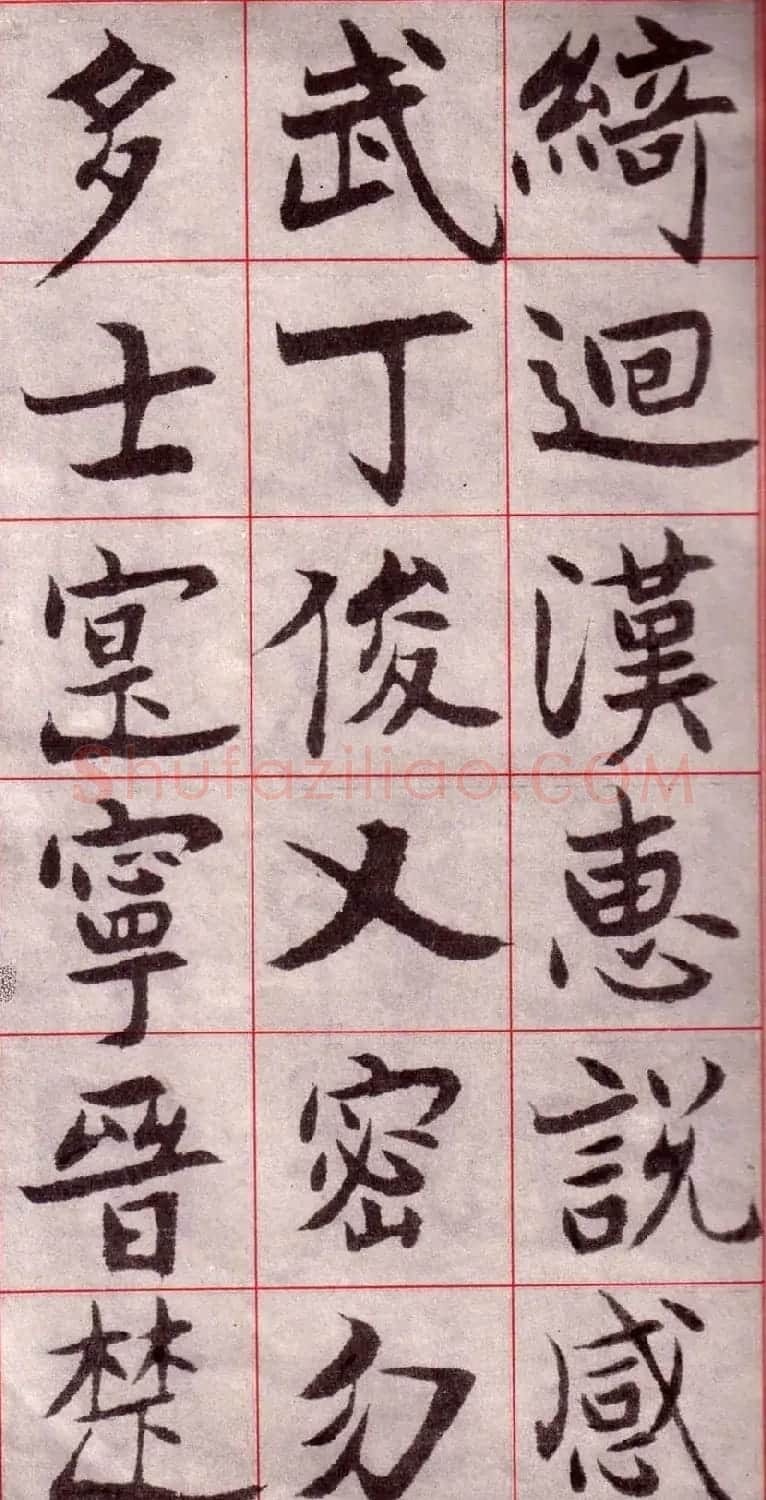 綺迴漢惠説感
武丁俊乂密勿
多士寔寧晉楚
Shufaziliao.COM